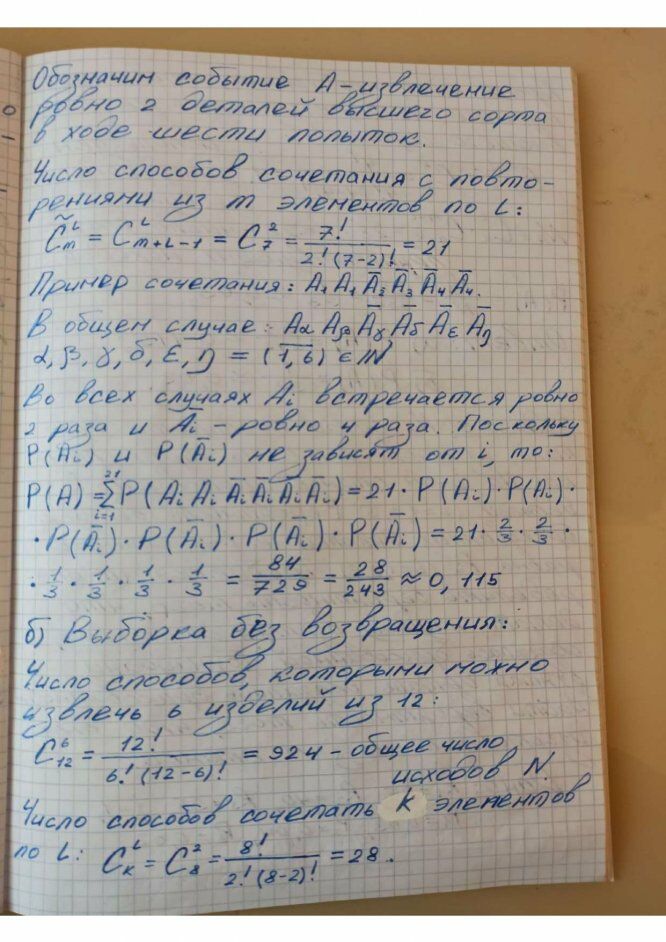 Обозначим событие A - извлечение
ровно 2 деталей высшего сорта
в ходе шести попыток.
Число способов сочетания с повто-
рениями из m элементов по L:
C̃ₘᴸ = Cᴸₘ₊L₋₁ = C₇² = 7!/(2!(7-2)!) = 21
Пример сочетания: A₁ A₁ Ā₂ Ā₃ Ā₄ Ā₄.
В общем случае: Aα Aβ Āγ Āδ Āε Āη
α, β, γ, δ, ε, η = (1,6) ∈ N
Во всех случаях Aᵢ встречается ровно
2 раза и Āᵢ - ровно 4 раза. Поскольку
P(Aᵢ) и P(Āᵢ) не зависят от i, то:
P(A) = Σᵢ₌₁²¹ P(Aᵢ Aᵢ Āᵢ Āᵢ Āᵢ Āᵢ) = 21 · P(Aᵢ) · P(Aᵢ) ·
· P(Āᵢ) · P(Āᵢ) · P(Āᵢ) · P(Āᵢ) = 21 · 2/3 · 2/3 ·
· 1/3 · 1/3 · 1/3 · 1/3 = 84/729 = 28/243 ≈ 0,115
б) Выборка без возвращения:
Число способов, которыми можно
извлечь 6 изделий из 12:
C₁₂⁶ = 12!/(6!(12-6)!) = 924 - общее число
исходов N.
Число способов сочетать K элементов
по L: Cₖᴸ = C₈² = 8!/(2!(8-2)!) = 28.